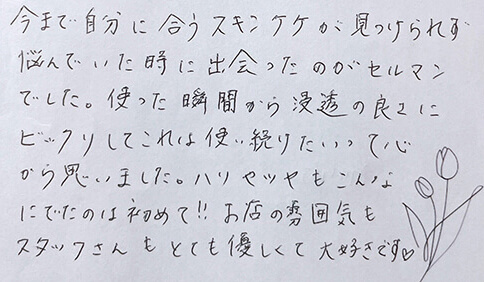 今まで自分に合うスキンケケが見つけられず
悩んでいた時に出会ったのがセルマン
でした。使った瞬間から浸透の良さに
ビックリしてこれは使い続けたいって心
から思いました。ハリやツヤもこんな
にでたのは初めて!! お店の雰囲気も
スタッフさんもとても優しくて大好きです♡